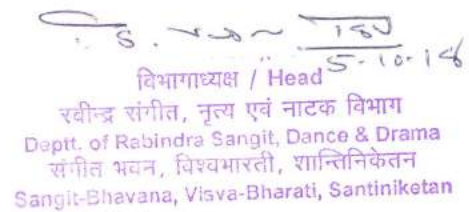 5.10.18
विभागाध्यक्ष / Head
रवीन्द्र संगीत, नृत्य एवं नाटक विभाग
Deptt. of Rabindra Sangit, Dance & Drama
संगीत भवन, विश्वभारती, शान्तिनिकेतन
Sangit-Bhavana, Visva-Bharati, Santiniketan